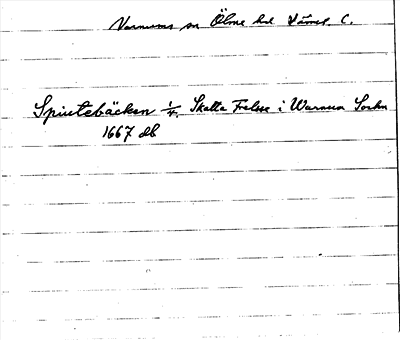 Varnums sn Ölme hd Värml. C.
Spirtebäcken 1/4 Skatte Frelse i Warnum Sochn
1667 db